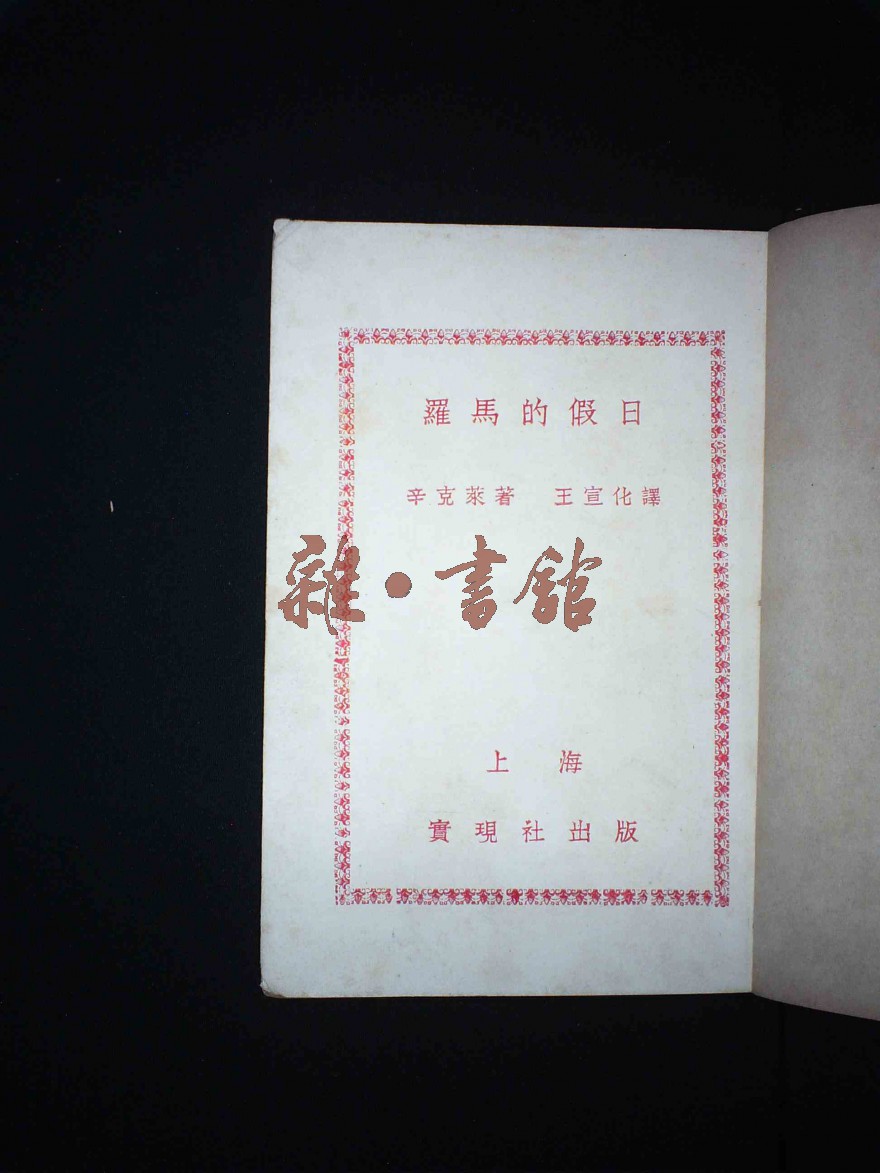 羅馬的假日
辛克萊著 王宣化譯
雜·書館
上海
實現社出版